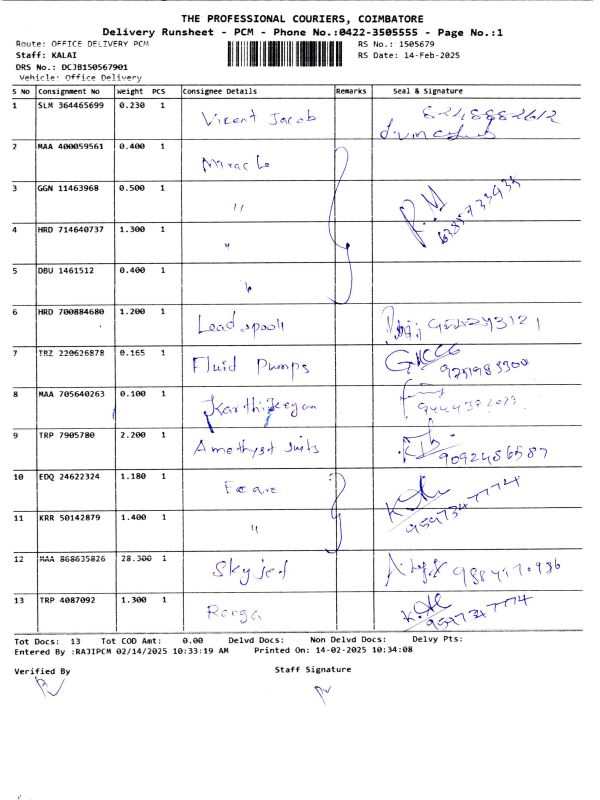 THE PROFESSIONAL COURIERS, COIMBATORE
Delivery Runsheet - PCM - Phone No.:0422-3505555 - Page No.:1
Route: OFFICE DELIVERY PCM RS No.: 1505679
Staff: KALAI RS Date: 14-Feb-2025
DRS No.: DCJB150567901
Vehicle: Office Delivery
S No Consignment No Weight PCS Consignee Details Remarks Seal & Signature
1 SLM 364465699 0.230 1 Vicent Jacob 8248882612
2 MAA 400059561 0.400 1 Miracle
3 GGN 11463968 0.500 1 " R.M
4 HRD 714640737 1.300 1 "
5 DBU 1461512 0.400 1 "
6 HRD 700884680 1.200 1
7 TRZ 220626878 0.165 1 Fluid Pumps
8 MAA 705640263 0.100 1 Karthikeyan
9 TRP 7905780 2.200 1 Amethyst 9092486587
10 EDQ 24622324 1.180 1 Ecare
11 KRR 50142879 1.400 1 "
12 MAA 868635826 28.300 1 Skyjet
13 TRP 4087092 1.300 1
Tot Docs: 13 Tot COD Amt: 0.00 Delvd Docs: Non Delvd Docs: Delvy Pts:
Entered By :RAJIPCM 02/14/2025 10:33:19 AM Printed On: 14-02-2025 10:34:08
Verified By Staff Signature